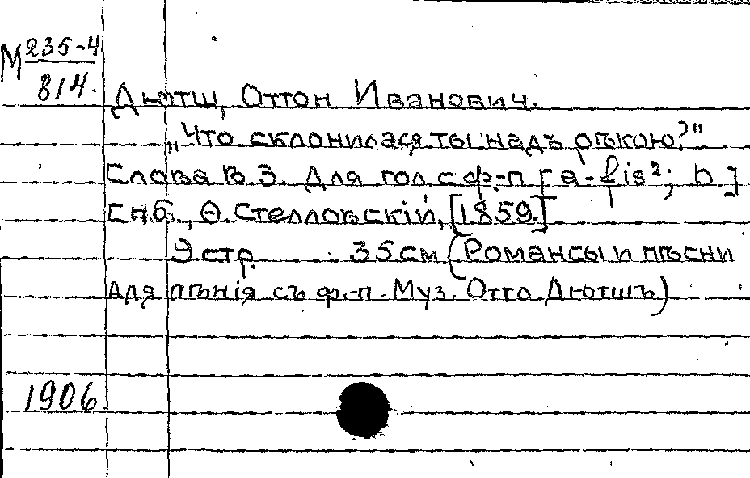 М 235-4
814.
Дютш, Оттон Иванович.
„Что склонилася ты надъ рѣкою?"
Слова В. З. Для гол. с ф.-п. [a-fis²; h]
Спб., Ѳ. Стелловскій, [1859]
9 стр. 35 см (Романсы и пѣсни
для пѣнія съ ф.-п. Муз. Отто Дютшъ)
1906.